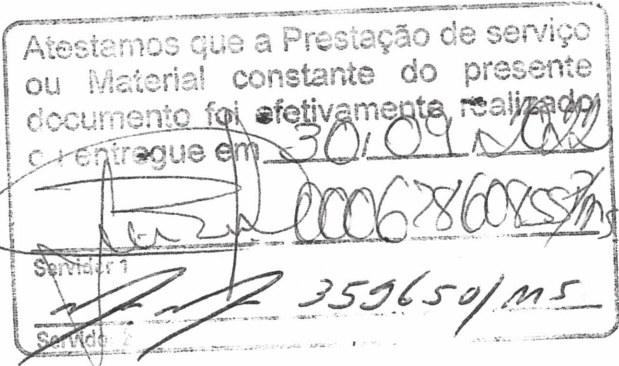 Atestamos que a Prestação de serviço
ou Material constante do presente
documento foi efetivamente realizado
ou entregue em 30/09/2022
Servidor 1
359650/MS
Servidor 2